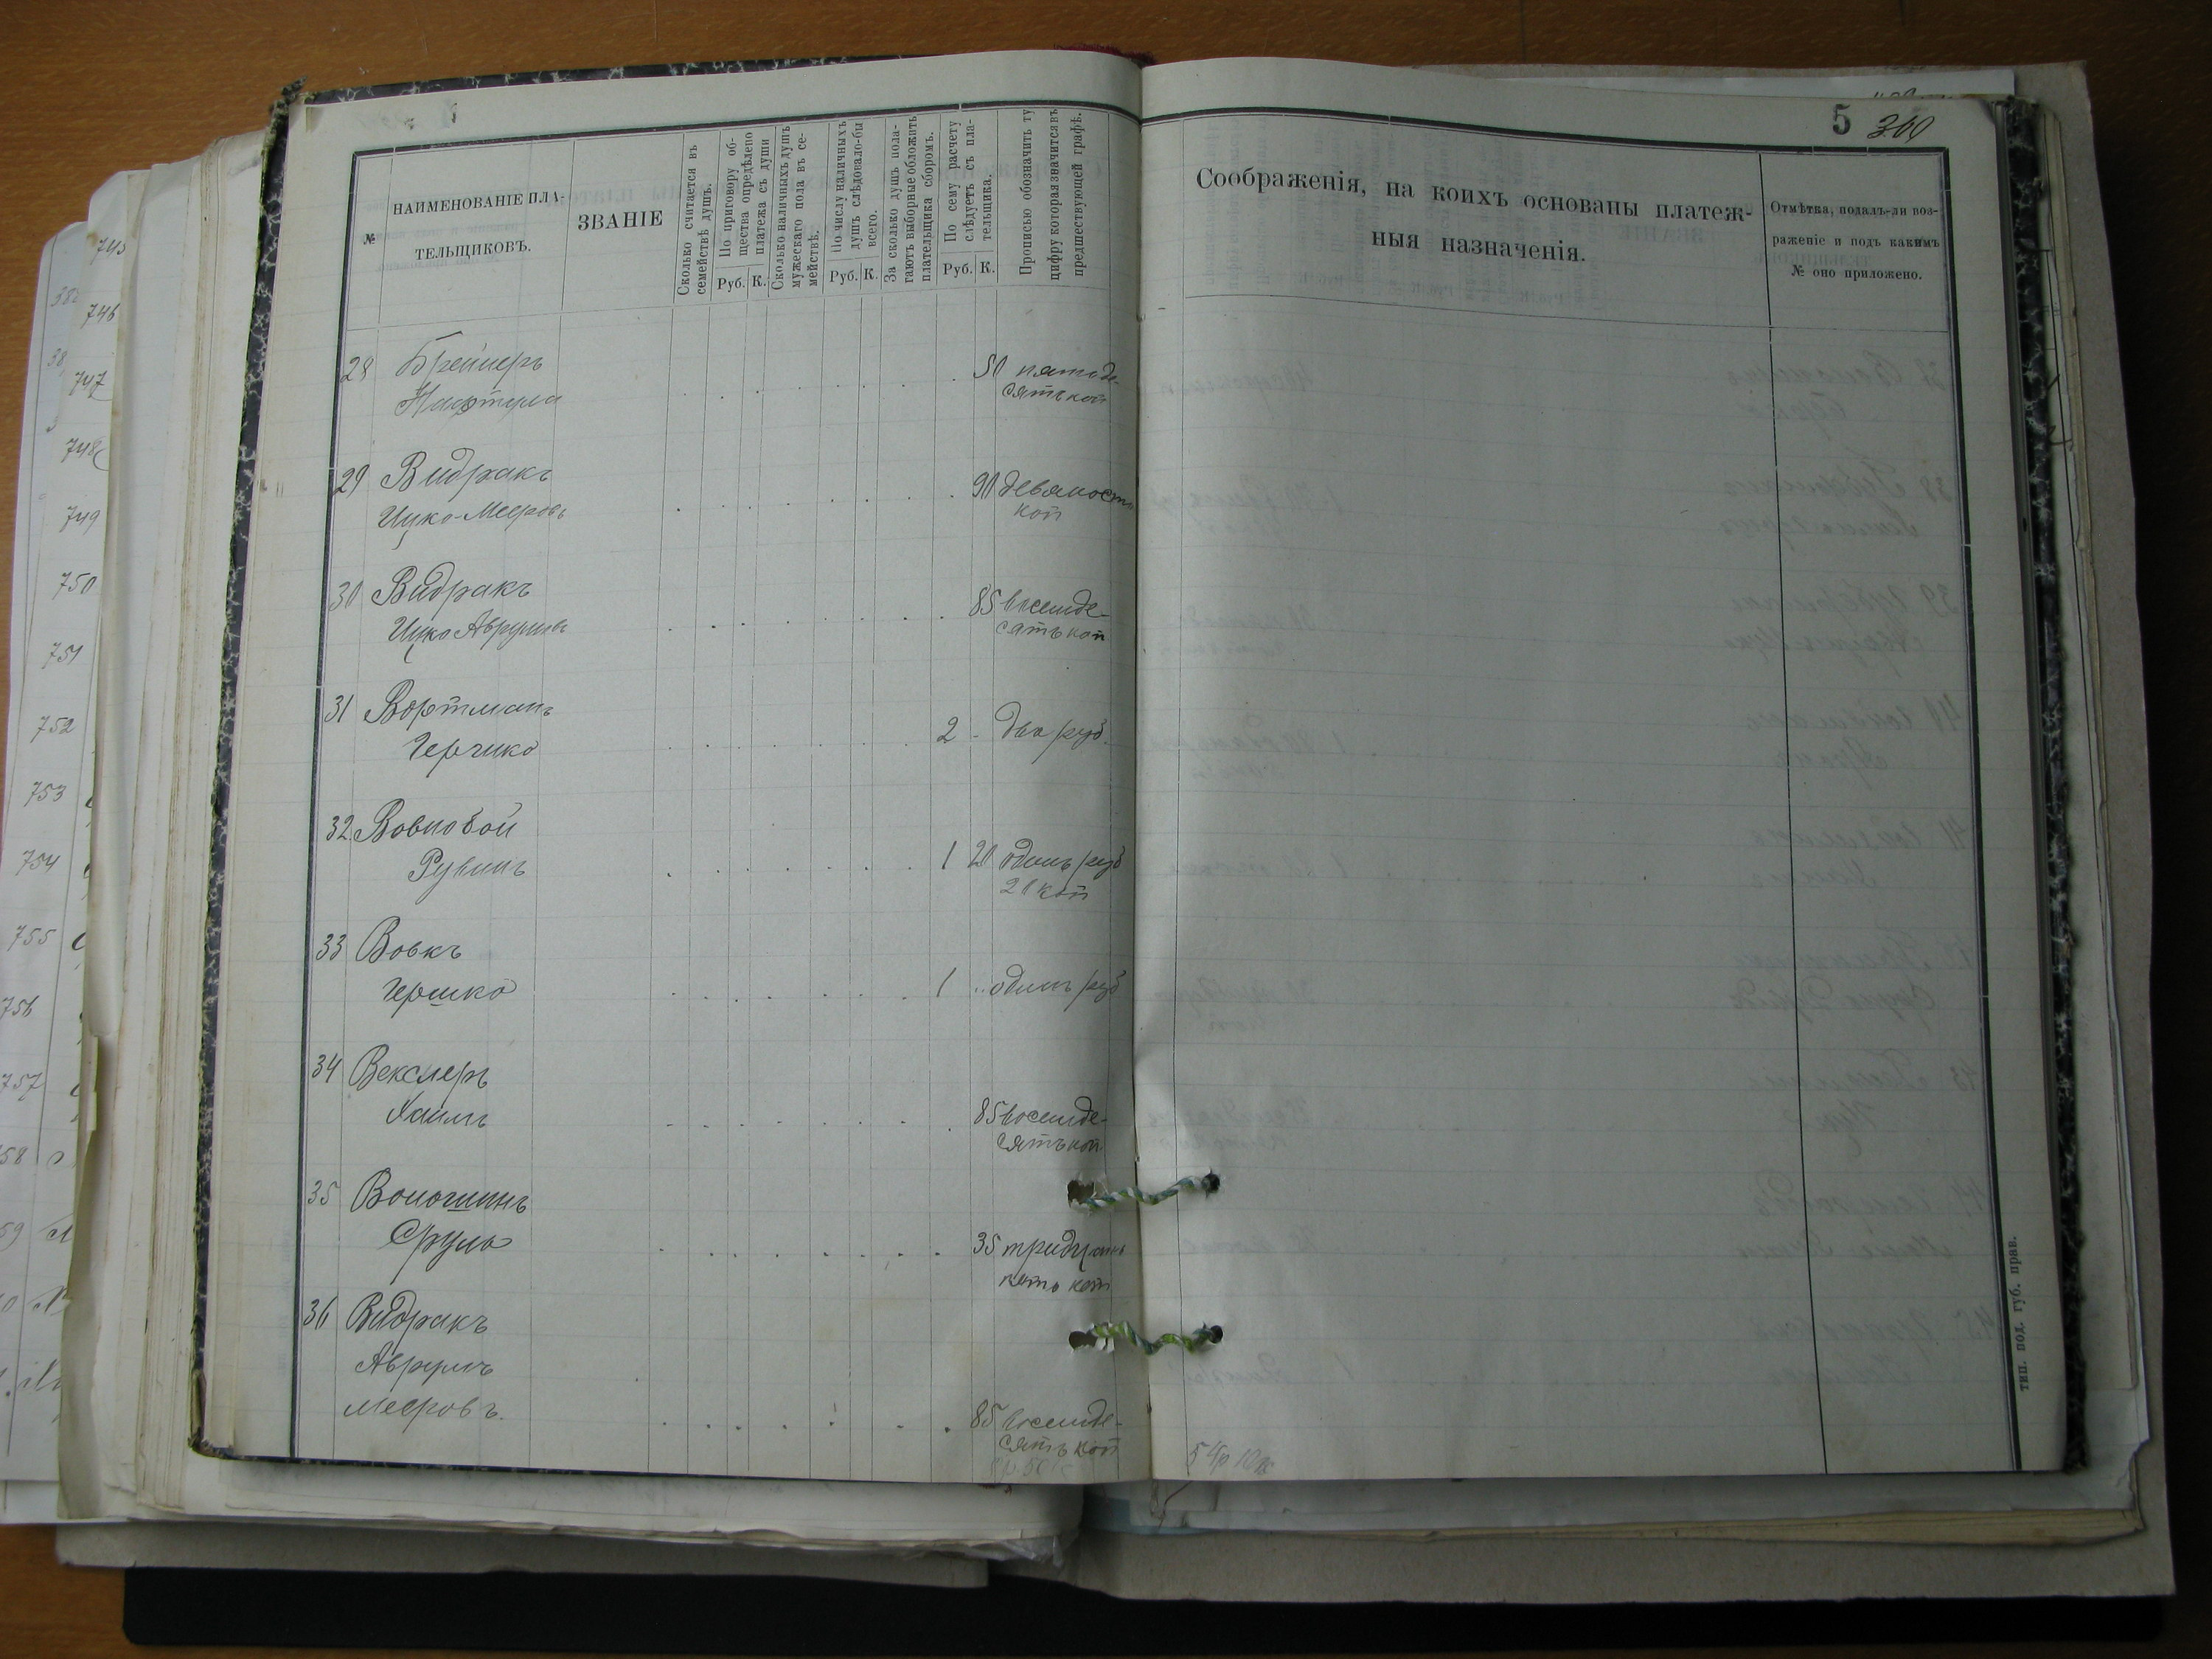 5 360
№
НАИМЕНОВАНІЕ ПЛА-
ТЕЛЬЩИКОВЪ.
ЗВАНІЕ
Сколько считается въ
семействѣ душъ.
По приговору об-
щества опредѣлено
платежа съ души
Руб. К.
Сколько наличныхъ душъ
мужескаго пола въ се-
мействѣ.
По числу наличныхъ
душъ слѣдовало-бы
всего.
Руб. К.
За сколько душъ пола-
гаютъ выборные обложить
плательщика сборомъ.
По сему расчету
слѣдуетъ съ пла-
тельщика.
Руб. К.
Прописью обозначить ту
цифру которая значится въ
предшествующей графѣ.
Соображенія, на коихъ основаны платеж-
ныя назначенія.
Отмѣтка, подалъ-ли воз-
раженіе и подъ какимъ
№ оно приложено.
28 Бреймеръ 50 пятьде-
Нафтула сятъ коп
29 Видракъ 90 девяносто
Ицко-Мееровъ коп
30 Видракъ 85 восемде-
Ицко Аврумовъ сятъ коп
31 Вортманъ
Герчико 2 - два руб.
32 Вовновой
Рувинъ 1 20 одинъ руб
20 коп
33 Вовкъ
Гершко 1 .. одинъ руб
34 Векслеръ
Хаимъ 85 восемде-
сятъ коп
35 Волошинъ
Сруль 35 тридцать
пять коп
36 Видракъ
Аврумъ
Мееровъ. 85 восемде-
сятъ коп
745
746
747
748
749
750
751
752
753
754
755
756
757
58
59
тип. под. губ. прав.